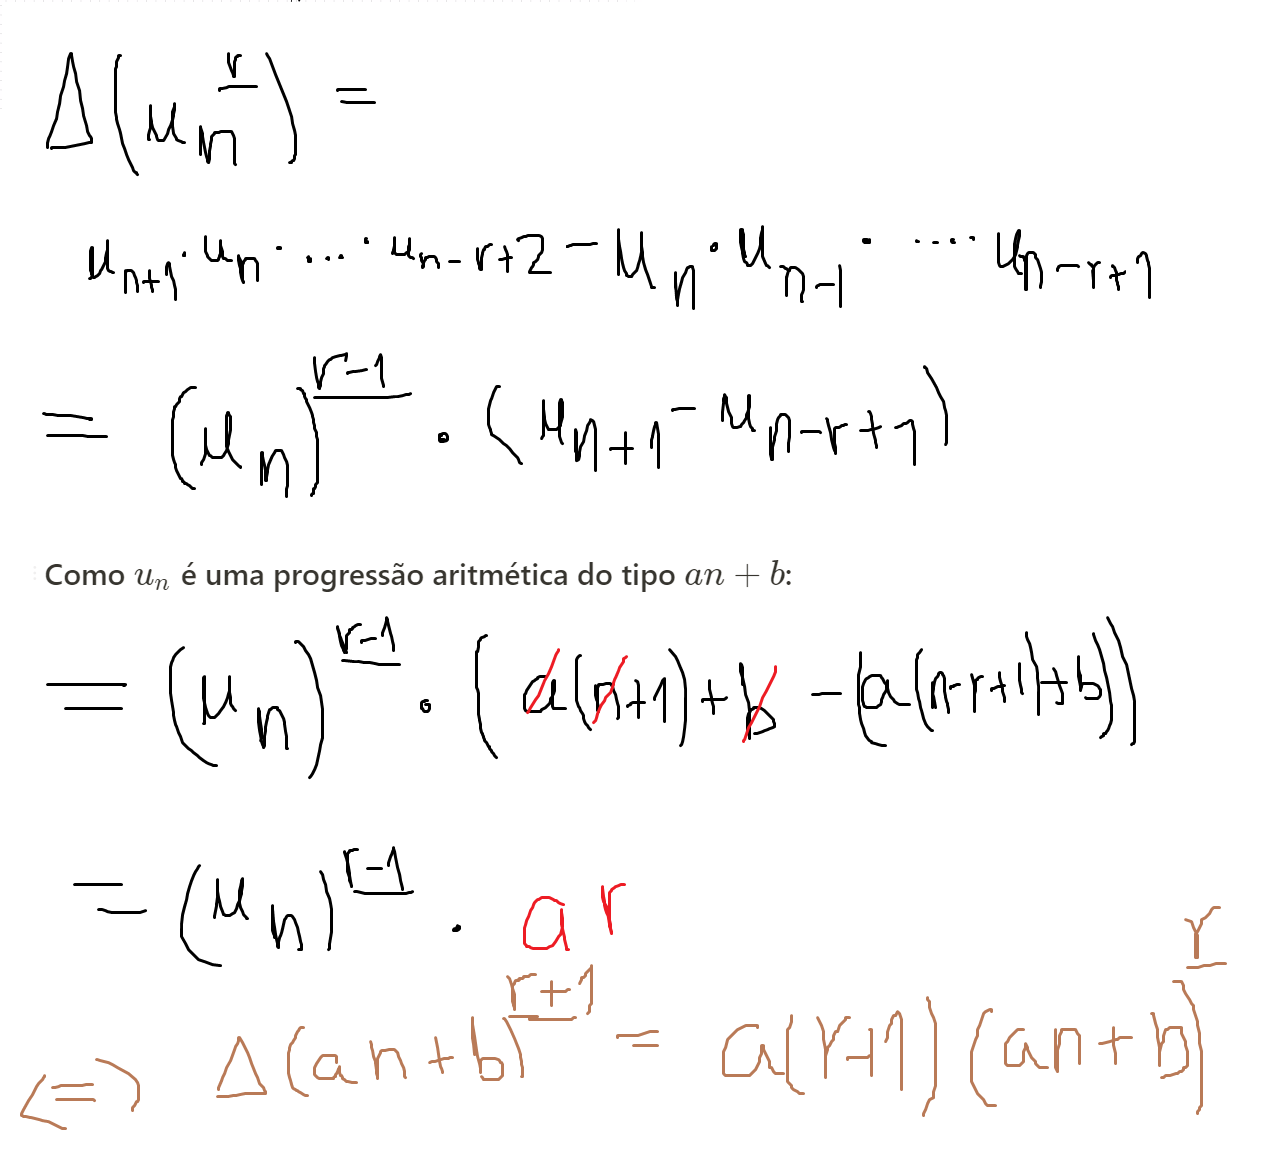 Δ(u_n^{\underline{r}}) =
u_{n+1} · u_n · ... · u_{n-r+2} - u_n · u_{n-1} · .... u_{n-r+1}
= (u_n)^{\underline{r-1}} · (u_{n+1} - u_{n-r+1})
Como u_n é uma progressão aritmética do tipo an + b:
= (u_n)^{\underline{r-1}} · (a(n+1)+b - (a(n-r+1)+b))
= (u_n)^{\underline{r-1}} . ar
<=> Δ(an+b)^{\underline{r+1}} = a(r+1)(an+b)^{\underline{r}}